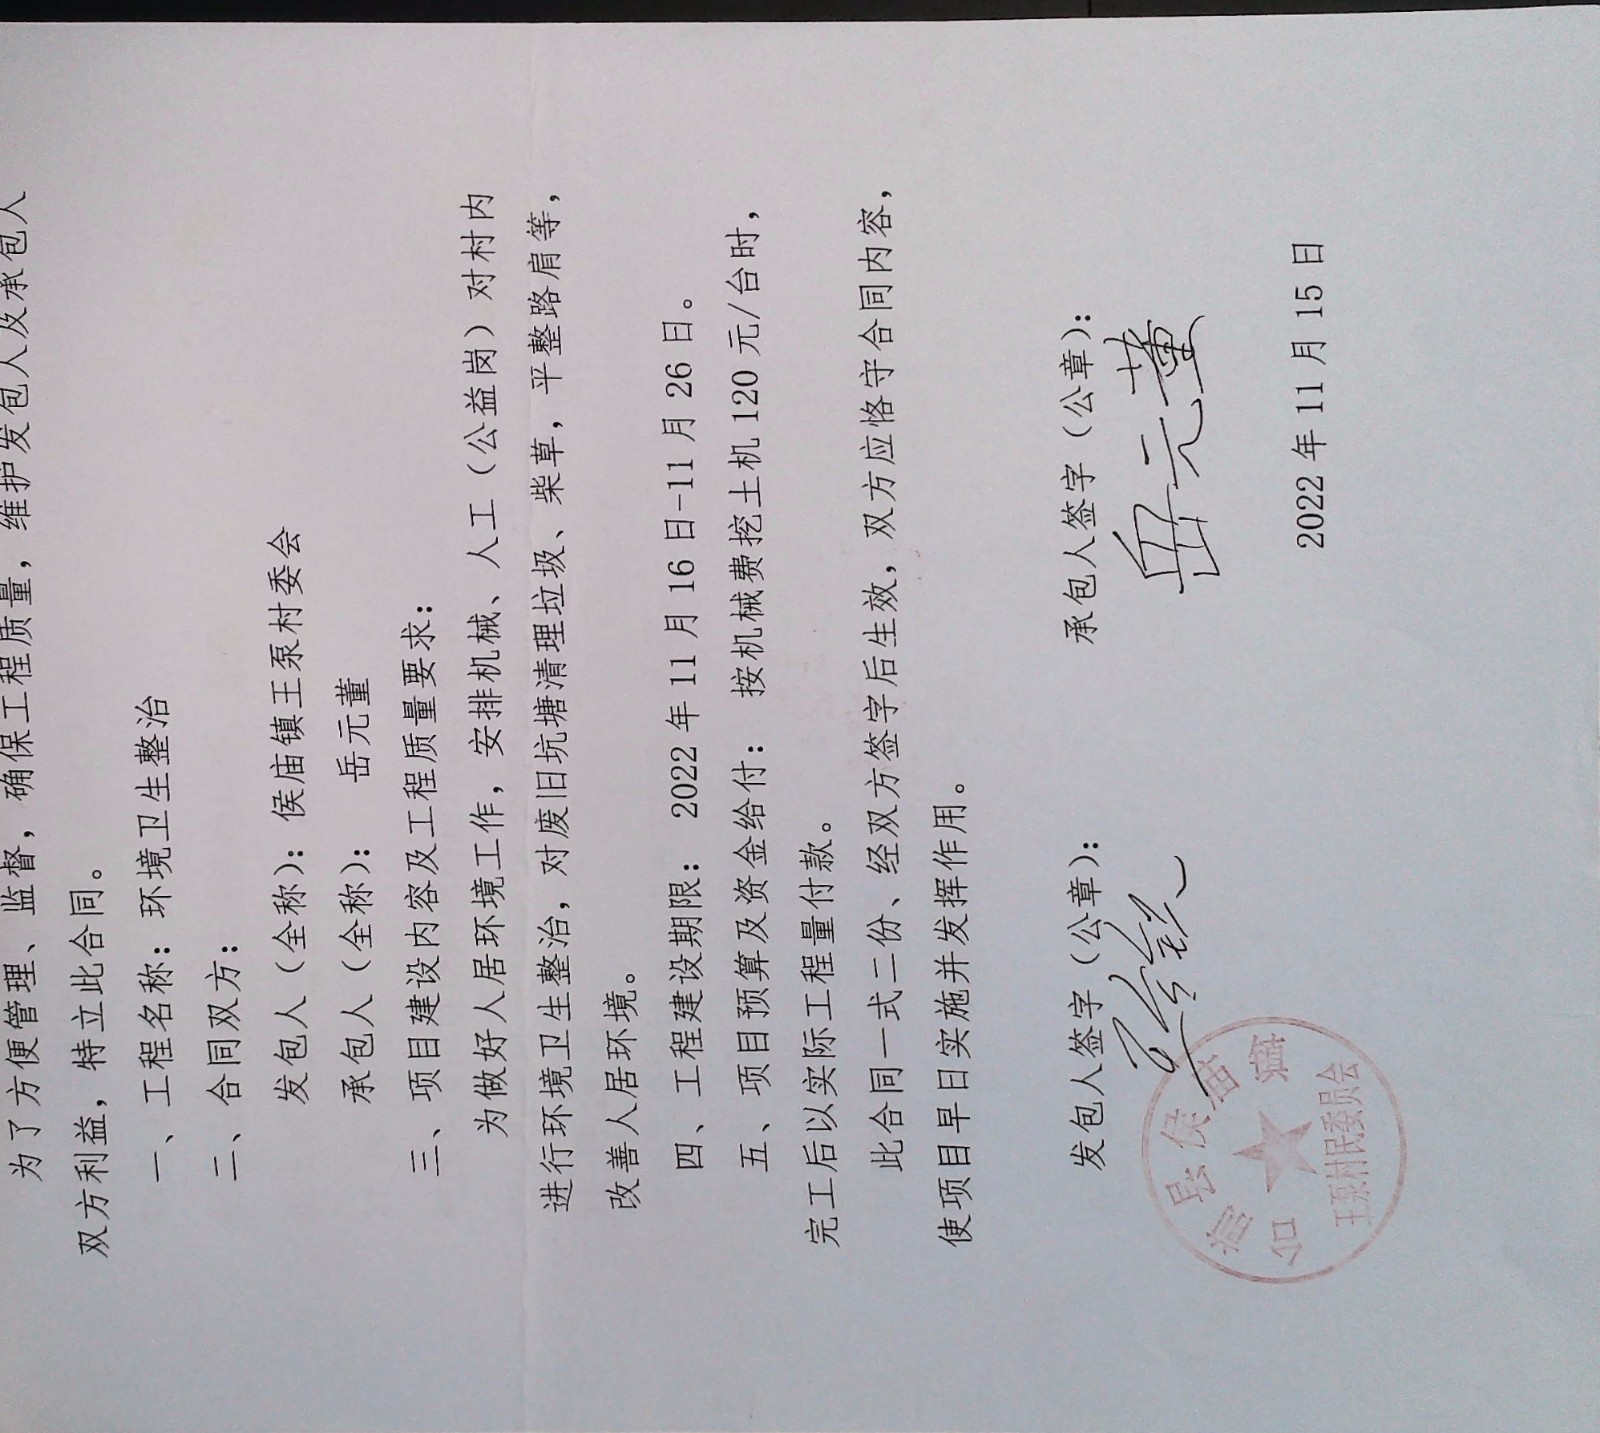 为了方便管理、监督，确保工程质量，维护发包人及承包人
双方利益，特立此合同。
一、工程名称：环境卫生整治
二、合同双方：
发包人（全称）：侯庙镇王泵村委会
承包人（全称）： 岳元董
三、项目建设内容及工程质量要求：
为做好人居环境工作，安排机械、人工（公益岗）对村内
进行环境卫生整治，对废旧坑塘清理垃圾、柴草，平整路肩等，
改善人居环境。
四、工程建设期限： 2022 年 11 月 16 日-11 月 26 日。
五、项目预算及资金给付： 按机械费挖土机 120 元/台时，
完工后以实际工程量付款。
此合同一式二份、经双方签字后生效，双方应恪守合同内容，
使项目早日实施并发挥作用。
发包人签字（公章）： 承包人签字（公章）：
岳元董
台前县侯庙镇
王泵村民委员会
2022 年 11 月 15 日